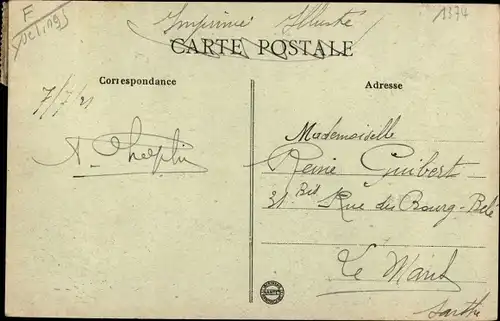 F
1374
Imprimé Illustré
CARTE POSTALE
Correspondance
Adresse
7/7/21
Mademoiselle
Reine Guibert
31 Bis Rue du Bourg-Belé
Le Mans
Sarthe